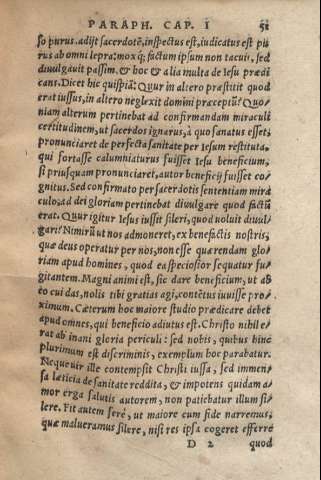 PARAPH. CAP. I 51
so purus. adijt sacerdotē, inspectus est, iudicatus est pu
rus ab omni lepra: mox q̃; factum ipsum non tacuit, sed
diuulgauit passim. & hoc & alia multa de Iesu prædi
cans. Dicet hic quispiã: Qur in altero præstitit quod
erat iussus, in altero neglexit domini præceptũ? Quo
niam alterum pertinebat ad confirmandam miraculi
certitudinem, ut sacerdos ignarus, à quo sanatus esset,
pronunciaret de perfecta sanitate per Iesum restituta,
qui fortasse calumniaturus fuisset Iesu beneficium,
si priusquam pronunciaret, autor beneficij fuisset co
gnitus. Sed confirmato per sacerdotis sententiam mira
culo, ad dei gloriam pertinebat diuulgare quod factũ
erat. Qur igitur Iesus iussit sileri, quod uoluit diuul
gari? Nimirũ ut nos admoneret, ex benefactis nostris,
quæ deus operatur per nos, non esse quærendam glo
riam apud homines, quod ea speciosior sequatur fu
gitantem. Magni animi est, sic dare beneficium, ut ab
eo cui das, nolis tibi gratias agi, contētus iuuisse pro
ximum. Cæterum hoc maiore studio prædicare debet
apud omnes, qui beneficio adiutus est. Christo nihil e
rat ab inani gloria periculi: sed nobis, quibus hinc
plurimum est discriminis, exemplum hoc parabatur.
Nequeuir ille contempsit Christi iussa, sed immen
sa lætitia de sanitate reddita, & impotens quidam a
mor erga salutis autorem, non patiebatur illum si
lere. Fit autem ferè, ut maiore cum fide narremus,
quæ malueramus silere, nisi res ipsa cogeret efferre
D 2 quod